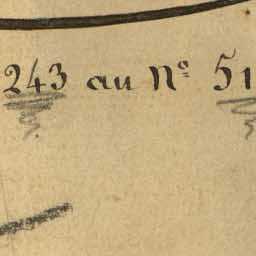 243 au Nº 51